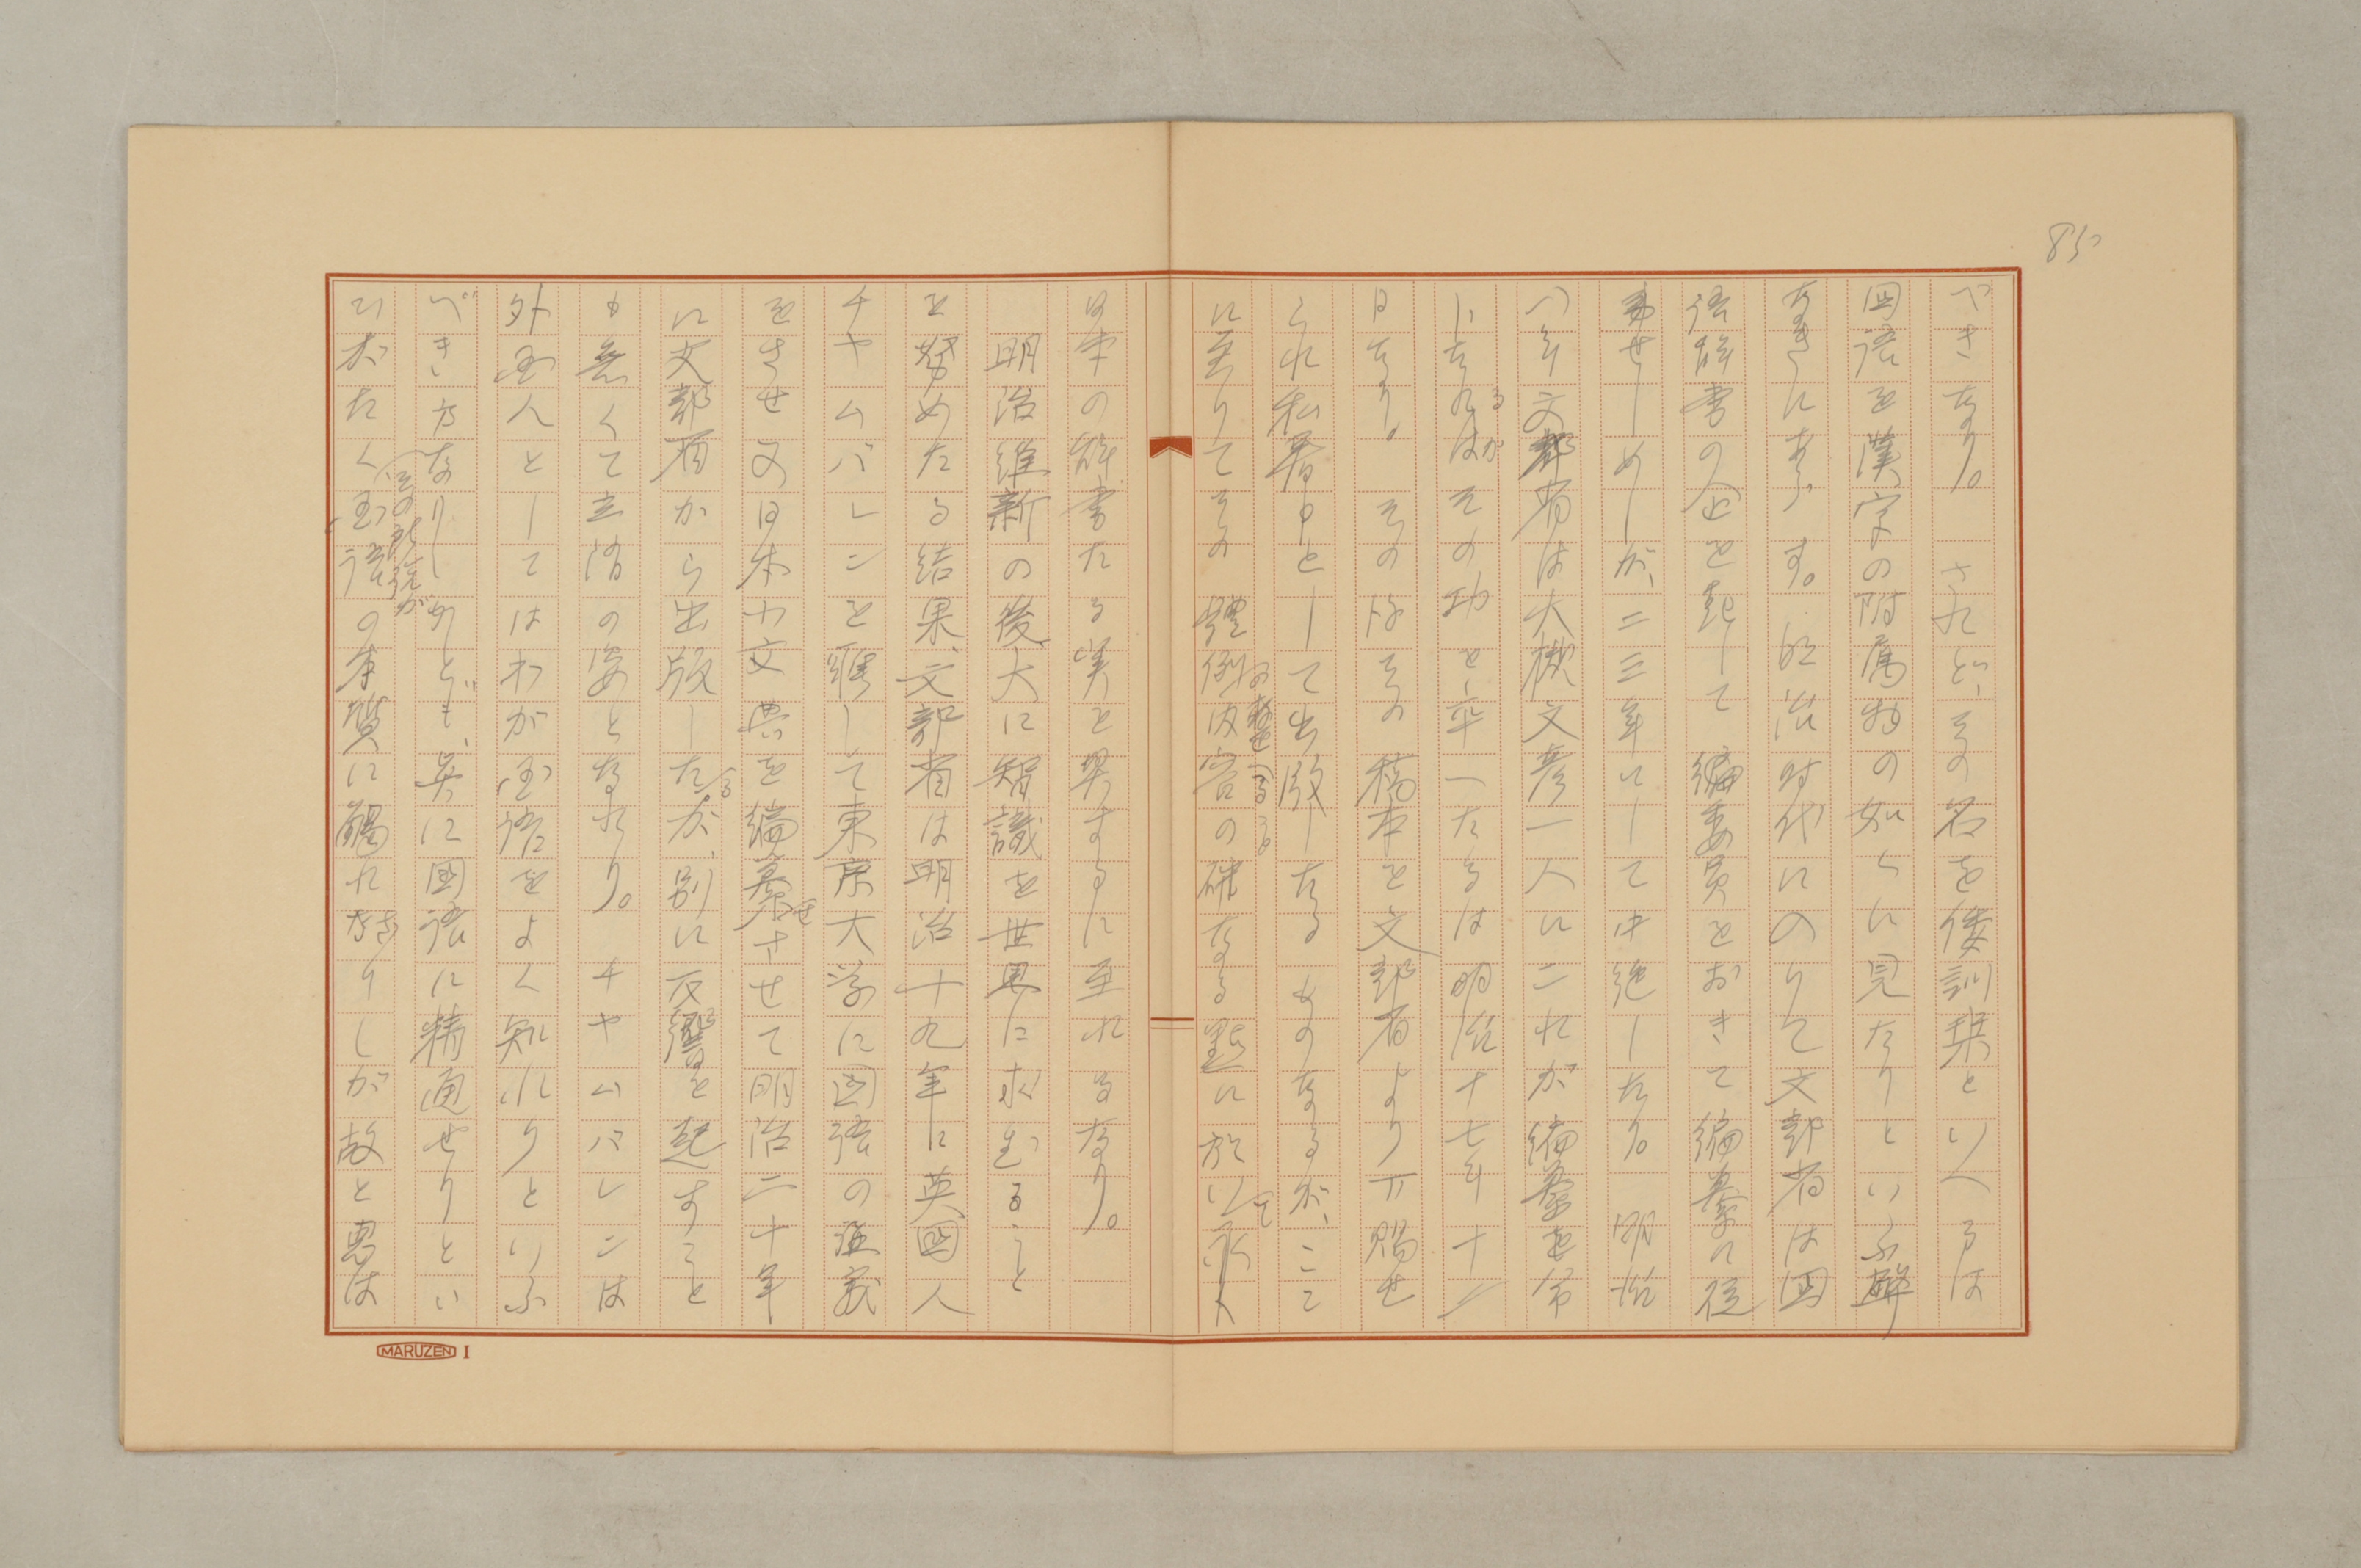 85
べきなり。されど、その名を倭訓栞といへるは
国語を漢字の附属物の如くに見たりといふ弊
なきにあらず。明治時代にのりて文部省は国
語辞書の企を起して編纂委員をおきて編纂に従
事せしめしが、二三年にして中絶したり。明治
八年文部省は大槻文彦一人にこれが編纂を命
じたるがその功を卒へたるは明治十七年十二
月なり。その後その稿本を文部省より下賜せ
られ私著として出版したるものなるが、ここ
に至りてその體例の整へると内容の確なる點に於いて永く
日本の辞書たる実を挙するに至れるなり。
明治維新の後、大に智識を世界に求むること
を努めたる結果、文部省は明治十九年に英国人
チャムバレンを雇して東京大学に国語の講義
をさせ又日本小文典を編纂せさせて明治二十年
に文部省から出版したるが、別に反響を起すこと
も無くて立消の姿となれり。チャムバレンは
外国人としてはわが国語をよく知れりといふ
べき方なりしかども、共に国語に精通せりとい
ひがたく、その所説が国語の本質に觸れざりしが故と思は
MARUZEN I